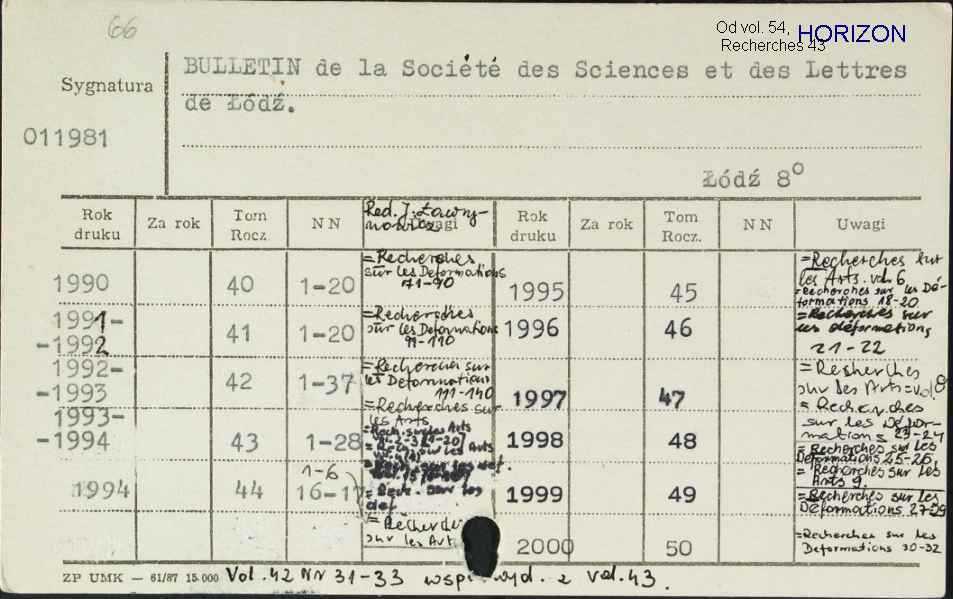 66
Od vol. 54,
Recherches 43
HORIZON
Sygnatura
011981
BULLETIN de la Société des Sciences et des Lettres
de Łódź.
Łódź 8°
Rok druku | Za rok | Tom Rocz. | NN | Uwagi | Rok druku | Za rok | Tom Rocz. | NN | Uwagi
Red. J. Ławry-
1990 40 1-20 =Recherches
sur les Deformations
71-90
1991-
-1992 41 1-20 =Recherches
sur les Deformations
91-110
1992-
-1993 42 1-37 =Recherches sur
les Deformations
111-140
=Recherches sur
les Arts
1993-
-1994 43 1-28
1994 44 1-6
16-17
=Rech. sur les
def
= Recherches
sur les Art
1995 45 =Recherches sur
les Arts. vol. 6
=Recherches sur les Dé-
formations 18-20
1996 46 =Recherches sur
les déformations
21-22
1997 47 =Recherches
sur des Arts=vol.8
= Recherches
sur les Défor-
mations 23-24
1998 48 =Recherches sur les
Deformations 25-26
=Recherches sur les
Arts 9.
1999 49 =Recherches sur les
Déformations 27-29
2000 50 =Recherches sur les
Deformations 30-32
ZP UMK — 61/87 15.000
Vol. 42 NN 31-33 wyd. z vol. 43.